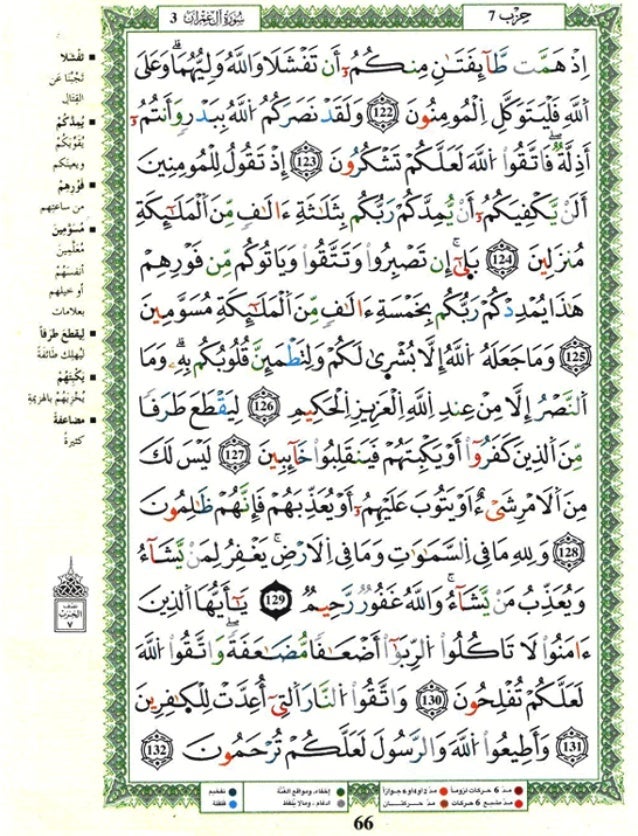 حِزْب 7
سُورَةُ آلِ عِمْرَانَ 3
إِذْ هَمَّت طَّآئِفَتَٰنِ مِنكُمُۥٓ أَن تَفْشَلَا وَاللَّهُ وَلِيُّهُمَاۗ وَعَلَى
اَللَّهِ فَلْيَتَوَكَّلِ اِلْمُومِنُونَ 122 وَلَقَدْ نَصَرَكُمُ اُللَّهُ بِبَدْرٖ وَأَنتُمُۥٓ
أَذِلَّةٞۖ فَاتَّقُواْ اُللَّهَ لَعَلَّكُمْ تَشْكُرُونَ 123 إِذْ تَقُولُ لِلْمُومِنِينَ
أَلَنْ يَّكْفِيَكُمُۥٓ أَنْ يُّمِدَّكُمْ رَبُّكُم بِثَلَٰثَةِ ءَالَٰفٖ مِّنَ اَلْمَلَٰٓئِكَةِ
مُنزَلِينَ 124 بَلَىٰٓۖ إِن تَصْبِرُواْ وَتَتَّقُواْ وَيَاتُوكُم مِّن فَوْرِهِمْ
هَٰذَا يُمْدِدْكُمْ رَبُّكُم بِخَمْسَةِ ءَالَٰفٖ مِّنَ اَلْمَلَٰٓئِكَةِ مُسَوَّمِينَ
125 وَمَا جَعَلَهُ اُللَّهُ إِلَّا بُشْرَىٰ لَكُمْ وَلِتَطْمَئِنَّ قُلُوبُكُم بِهِۦۗ وَمَا
اَلنَّصْرُ إِلَّا مِنْ عِندِ اِللَّهِ اِلْعَزِيزِ اِلْحَكِيمِ 126 لِيَقْطَعَ طَرَفاٗ
مِّنَ اَلَّذِينَ كَفَرُوٓاْ أَوْ يَكْبِتَهُمْ فَيَنقَلِبُواْ خَآئِبِينَ 127 لَيْسَ لَكَ
مِنَ اَلَامْرِ شَيْءٌ اَوْ يَتُوبَ عَلَيْهِمُۥٓ أَوْ يُعَذِّبَهُمْ فَإِنَّهُمْ ظَٰلِمُونَ
128 وَلِلهِ مَا فِي اِلسَّمَٰوَٰتِ وَمَا فِي اِلَارْضِۖ يَغْفِرُ لِمَنْ يَّشَآءُ
وَيُعَذِّبُ مَنْ يَّشَآءُۖ وَاللَّهُ غَفُورٞ رَّحِيمٞ 129 يَٰٓأَيُّهَا اَلَّذِينَ
ءَامَنُواْ لَا تَاكُلُواْ اُلرِّبَوٰٓاْ أَضْعَٰفاٗ مُّضَٰعَفَةٗۖ وَاتَّقُواْ اُللَّهَ
لَعَلَّكُمْ تُفْلِحُونَ 130 وَاتَّقُواْ اُلنَّارَ اَلَّتِےٓ أُعِدَّتْ لِلْكٰفِرِينَ
131 وَأَطِيعُواْ اُللَّهَ وَالرَّسُولَ لَعَلَّكُمْ تُرْحَمُونَ 132
■ تَفْشَلا
تَجْبُنَا عَن
القِتَالِ
■ يُمِدَّكُمْ
يُقَوِّيكُمْ
ويعينكم
■ فَوْرِهِمْ
من ساعتِهم
■ مُسَوَّمِينَ
مُعَلَّمِينَ
أنفسَهُمْ
أو خيلهم
بعلامات
■ لِيَقْطَعَ طَرَفاً
لِيُهلِكَ طَائفةً
■ يَكْبِتَهُمْ
يُخْزِيَهُمْ بالهزيمةِ
■ مضاعفةً
كثيرةً
نصف
الحزب
٧
مدّ 6 حركات لزوماً
مدّ 2 أو 4 أو 6 جوازاً
إخفاء، ومواقع الغُنَّة
تفخيم
مدّ مشبع 6 حركات
مدّ حركتان
ادغام، ومالا يلفظ
قلقلة
66